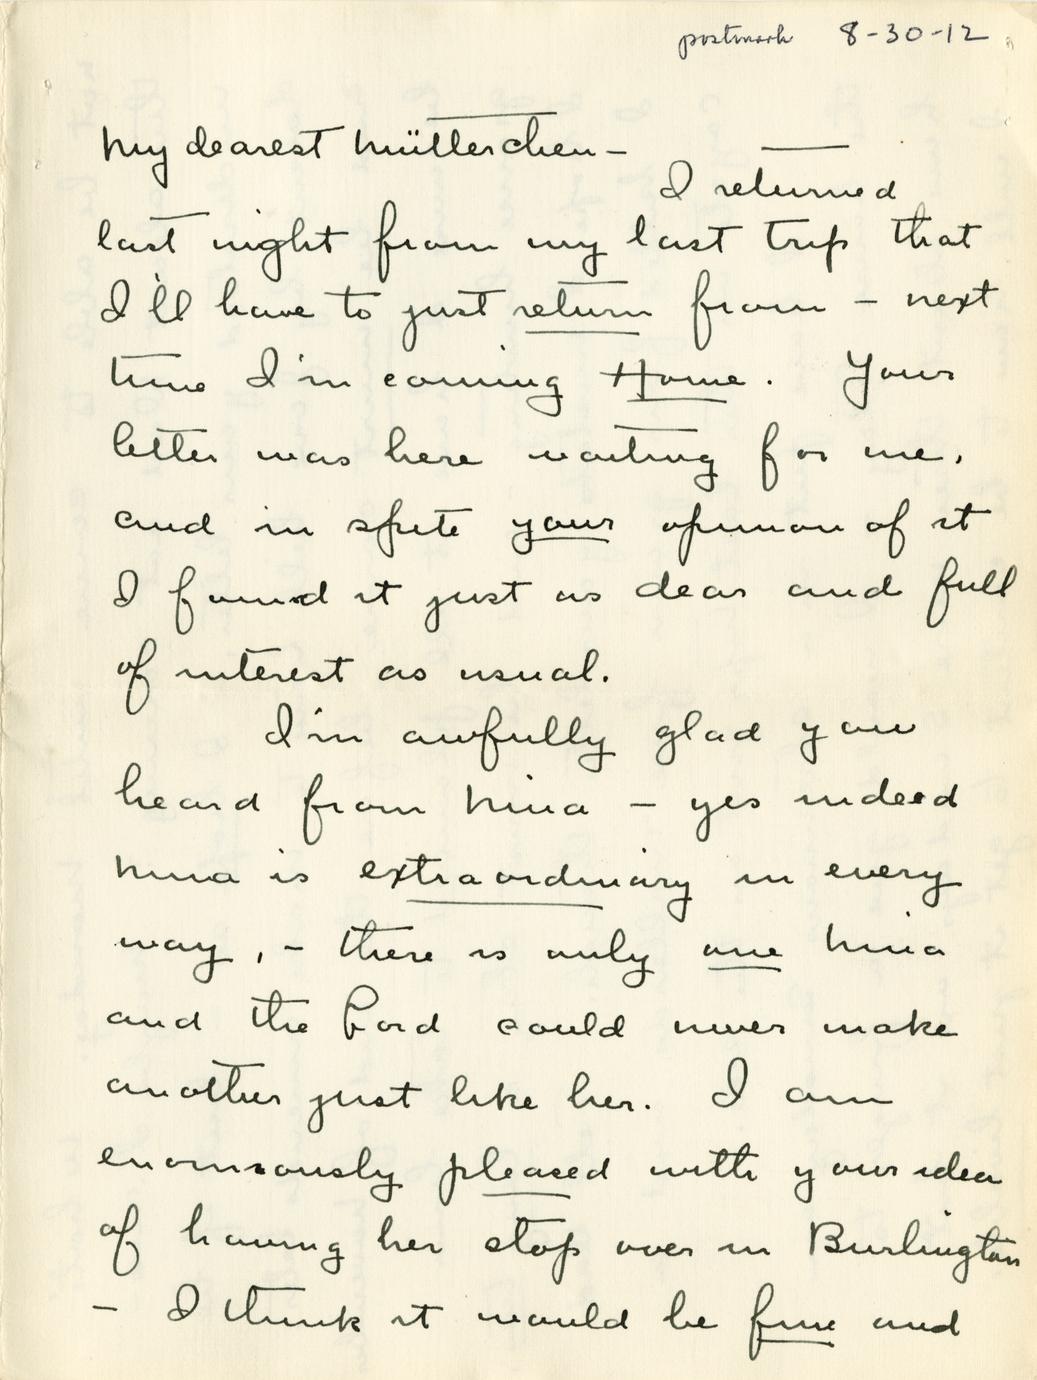 postmark 8-30-12
My dearest Mütterchen –
I returned
last night from my last trip that
I'll have to just return from – next
time I'm coming Home. Your
letter was here waiting for me,
and in spite your opinion of it
I found it just as dear and full
of interest as usual.
I'm awfully glad you
heard from Nina – yes indeed
Nina is extraordinary in every
way, – there is only one Nina
and the Lord could never make
another just like her. I am
enormously pleased with your idea
of having her stop over in Burlington
– I think it would be fine and